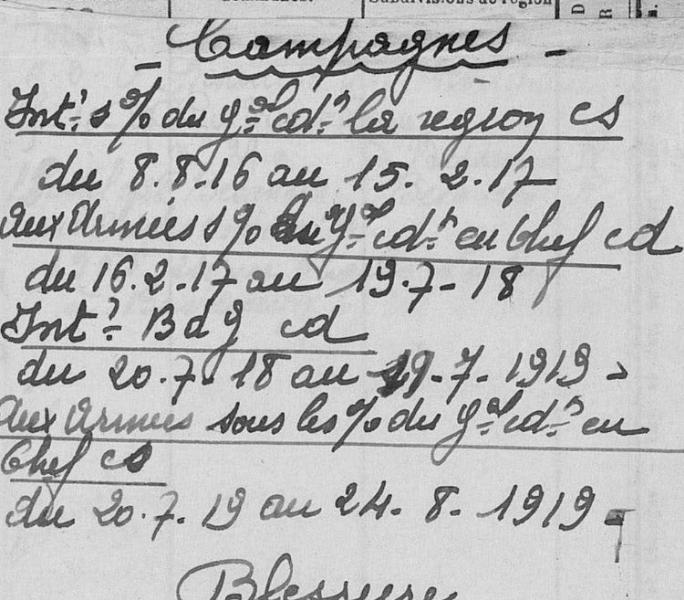 Subdivisions de région
- Campagnes -
Int.r s % du g.al cd.t la region CS
du 8.8.16 au 15. 2.17
aux Armées s % du g.al cd.t en Chef cd
du 16.2.17 au 19.7-18
Int.r B d g cd
du 20.7.18 au 19.7.1919
aux Armées sous les % du g.al cd.t en
Chef CS
du 20.7.19 au 24. 8. 1919